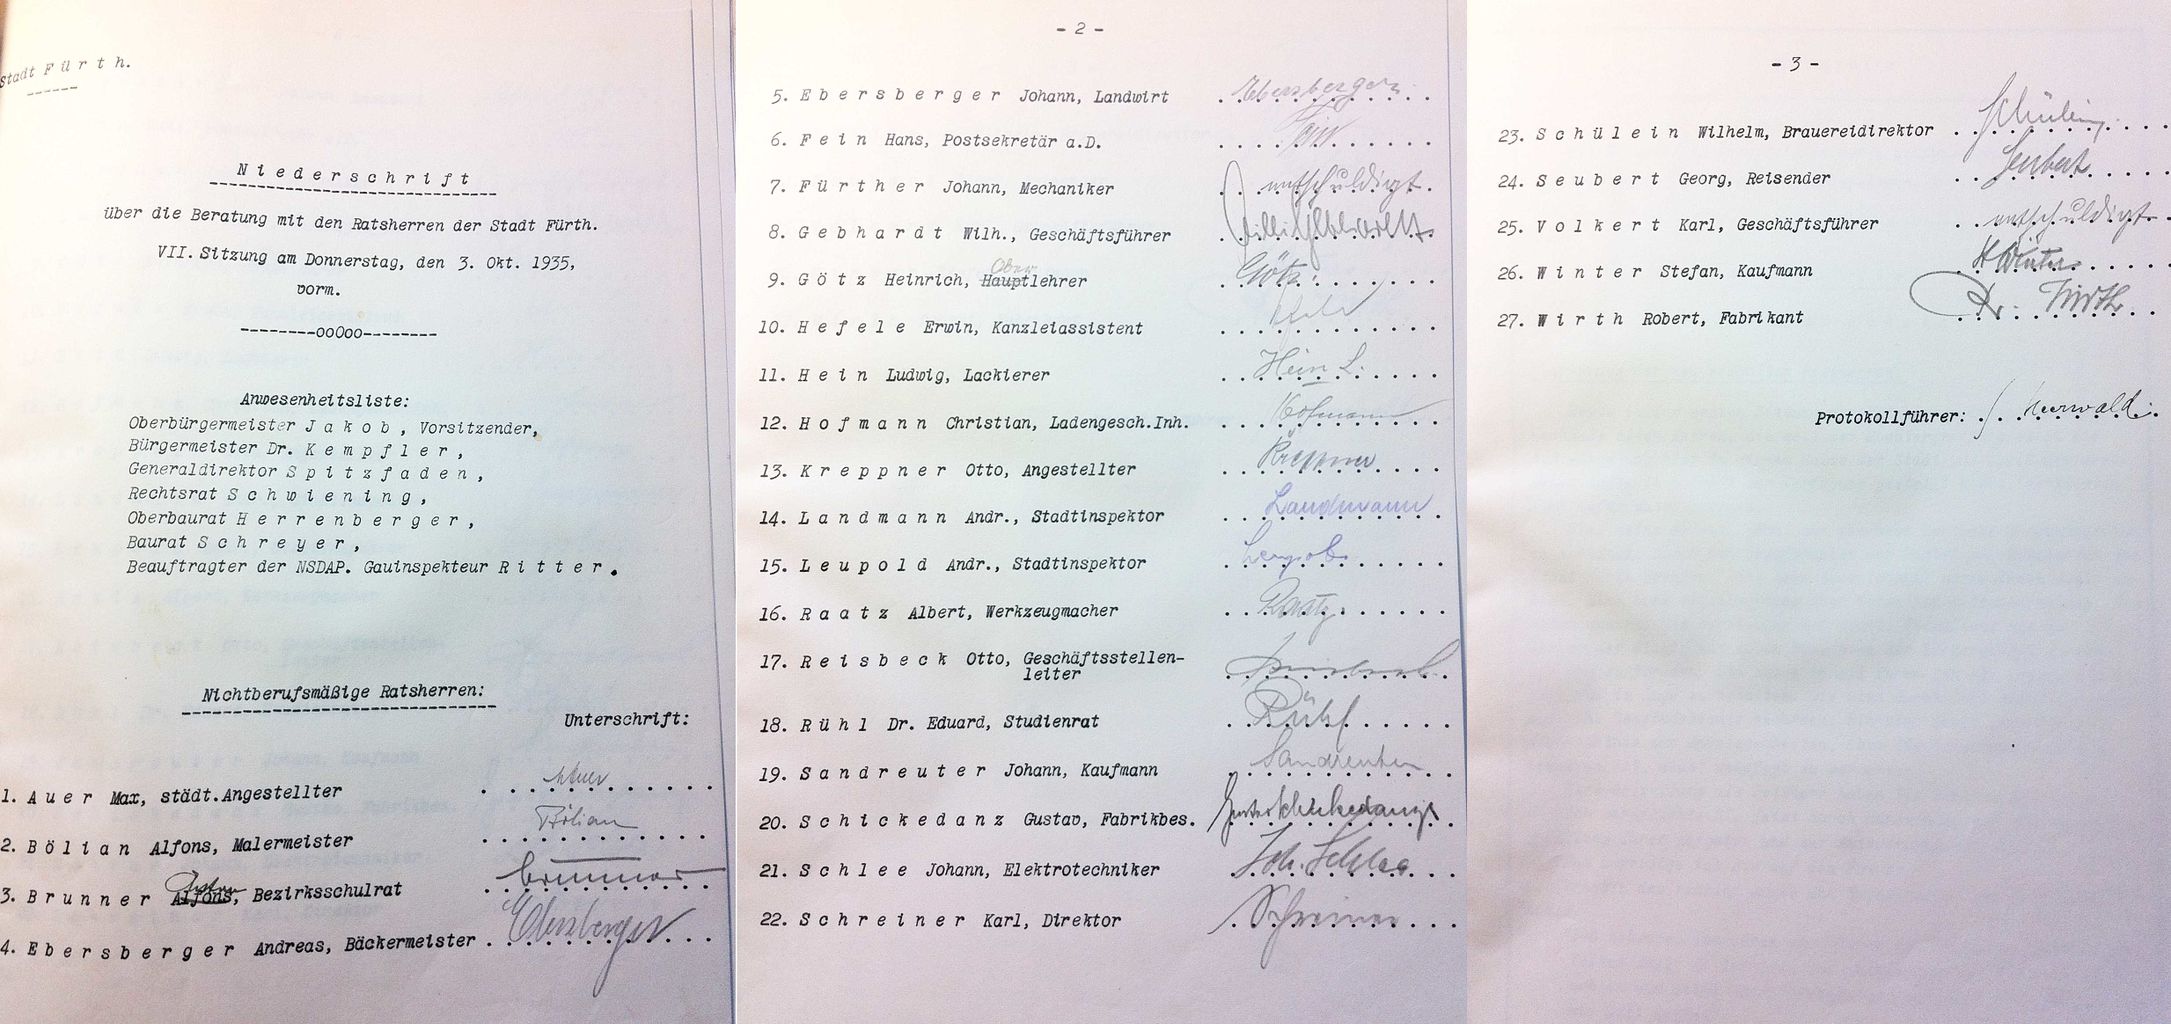 Stadt Fürth.
Niederschrift
über die Beratung mit den Ratsherren der Stadt Fürth.
VII. Sitzung am Donnerstag, den 3. Okt. 1935,
vorm.
--------ooOoo--------
Anwesenheitsliste:
Oberbürgermeister Jakob, Vorsitzender,
Bürgermeister Dr. Kempfler,
Generaldirektor Spitzfaden,
Rechtsrat Schwiening,
Oberbaurat Herrenberger,
Baurat Schreyer,
Beauftragter der NSDAP. Gauinspekteur Ritter.
Nichtberufsmäßige Ratsherren:
Unterschrift:
1. Auer Max, städt.Angestellter Auer
2. Bölian Alfons, Malermeister Bölian
3. Brunner Alfons, Bezirksschulrat Brunner
4. Ebersberger Andreas, Bäckermeister Ebersberger
- 2 -
5. Ebersberger Johann, Landwirt Ebersberger
6. Fein Hans, Postsekretär a.D. Fein
7. Fürther Johann, Mechaniker entschuldigt
8. Gebhardt Wilh., Geschäftsführer Willi Gebhardt
9. Götz Heinrich, Hauptlehrer Ober Götz
10. Hefele Erwin, Kanzleiassistent
11. Hein Ludwig, Lackierer Hein L.
12. Hofmann Christian, Ladengesch.Inh. Hofmann
13. Kreppner Otto, Angestellter Kreppner
14. Landmann Andr., Stadtinspektor Landmann
15. Leupold Andr., Stadtinspektor
16. Raatz Albert, Werkzeugmacher Raatz
17. Reisbeck Otto, Geschäftsstellen-
leiter
18. Rühl Dr. Eduard, Studienrat Rühl
19. Sandreuter Johann, Kaufmann Sandreuter
20. Schickedanz Gustav, Fabrikbes. Gustav Schickedanz
21. Schlee Johann, Elektrotechniker Joh. Schlee
22. Schreiner Karl, Direktor Schreiner
- 3 -
23. Schülein Wilhelm, Brauereidirektor Schülein
24. Seubert Georg, Reisender Seubert
25. Volkert Karl, Geschäftsführer entschuldigt
26. Winter Stefan, Kaufmann Winter
27. Wirth Robert, Fabrikant R. Wirth
Protokollführer: